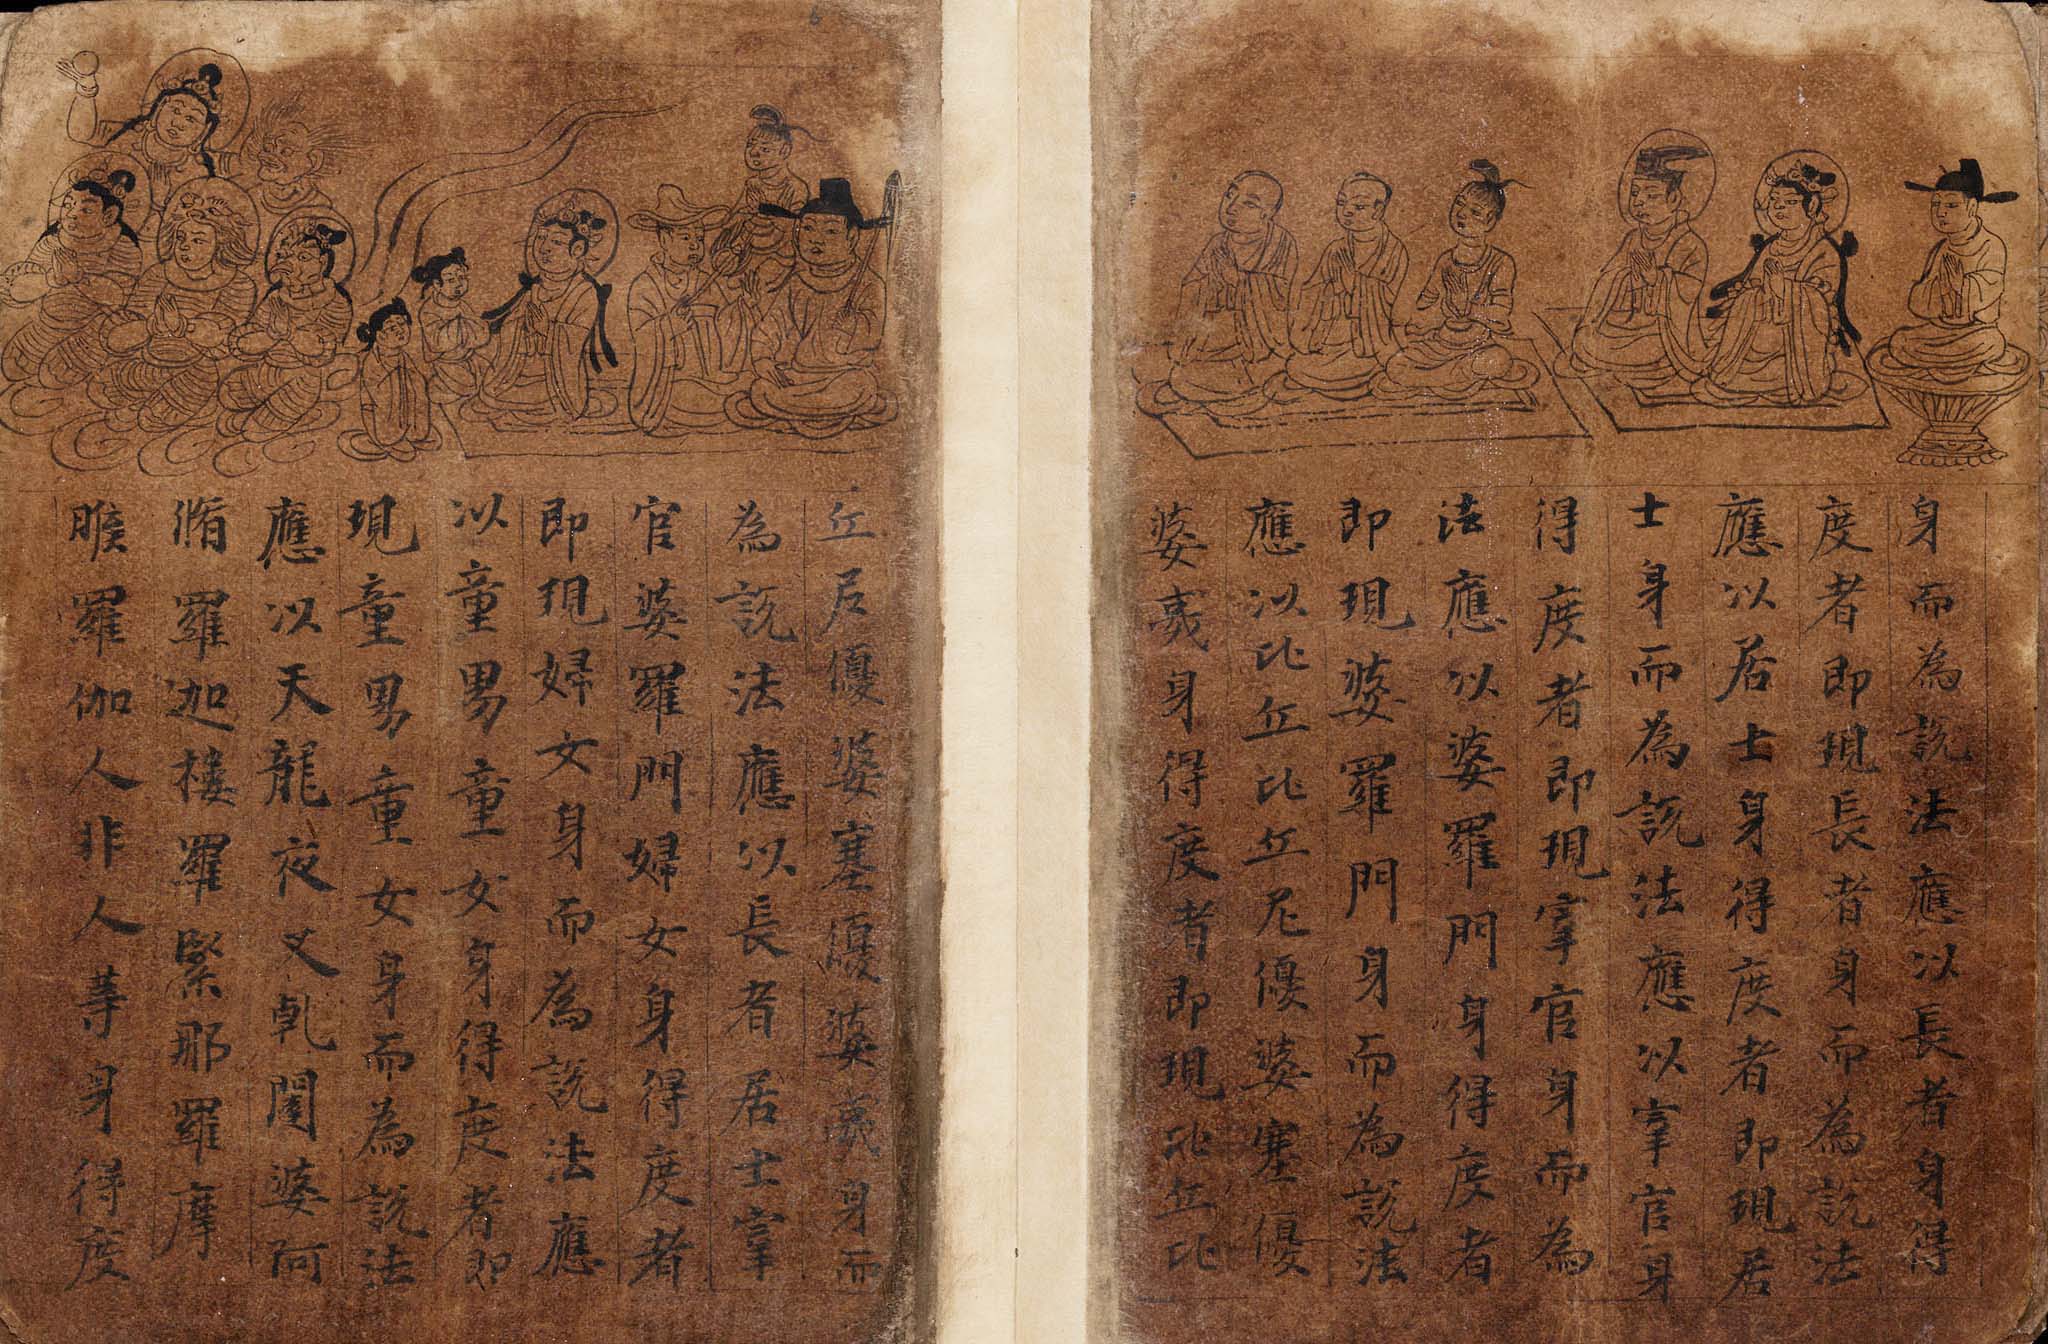 身而為說法應以長者身得
度者即現長者身而為說法
應以居士身得度者即現居
士身而為說法應以宰官身
得度者即現宰官身而為
法應以婆羅門身得度者
即現婆羅門身而為說法
應以比丘比丘尼優婆塞優
婆夷身得度者即現比丘比
丘尼優婆塞優婆夷身而
為說法應以長者居士宰
官婆羅門婦女身得度者
即現婦女身而為說法應
以童男童女身得度者即
現童男童女身而為說法
應以天龍夜叉乹闥婆阿
脩羅迦樓羅緊那羅摩
睺羅伽人非人等身得度